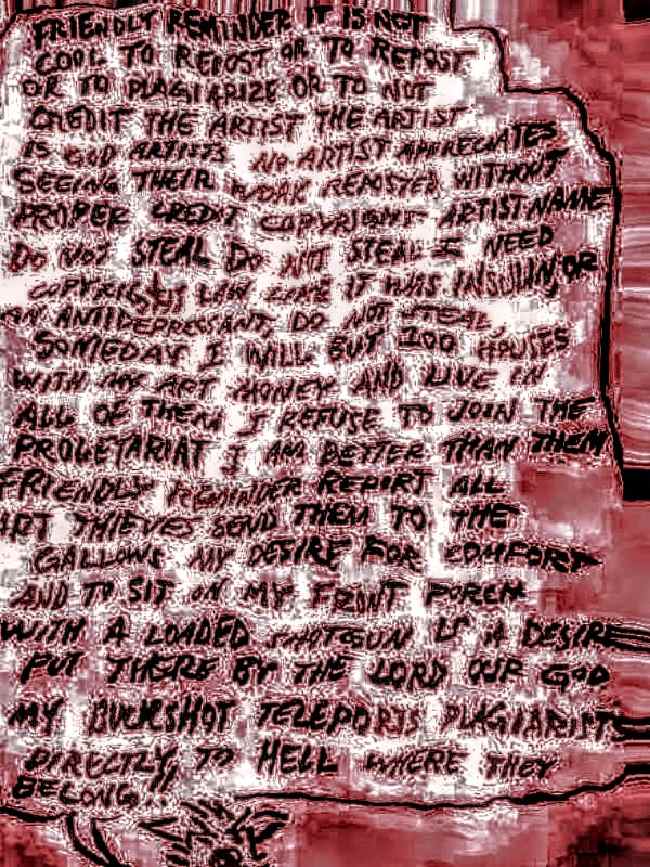 FRIENDLY REMINDER IT IS NOT
COOL TO REPOST OR TO REPOST
OR TO PLAGIARIZE OR TO NOT
CREDIT THE ARTIST THE ARTIST
IS GOD ARTISTS NO ARTIST APPRECIATES
SEEING THEIR WORK REPOSTED WITHOUT
PROPER CREDIT COPYRIGHT ARTIST NAME
DO NOT STEAL DO NOT STEAL I NEED
COPYRIGHT LAW LIKE IT WAS INSULIN, OR
AN ANTIDEPRESSANT, DO NOT STEAL,
SOMEDAY I WILL BUY 100 HOUSES
WITH MY ART MONEY AND LIVE IN
ALL OF THEM I REFUSE TO JOIN THE
PROLETARIAT I AM BETTER THAN THEM
FRIENDLY REMINDER REPORT ALL
ART THIEVES SEND THEM TO THE
GALLOWS MY DESIRE FOR COMFORT
AND TO SIT ON MY FRONT PORCH
WITH A LOADED SHOTGUN IS A DESIRE
PUT THERE BY THE LORD OUR GOD
MY BUCKSHOT TELEPORTS PLAGIARISTS
DIRECTLY, TO HELL WHERE THEY
BELONG..